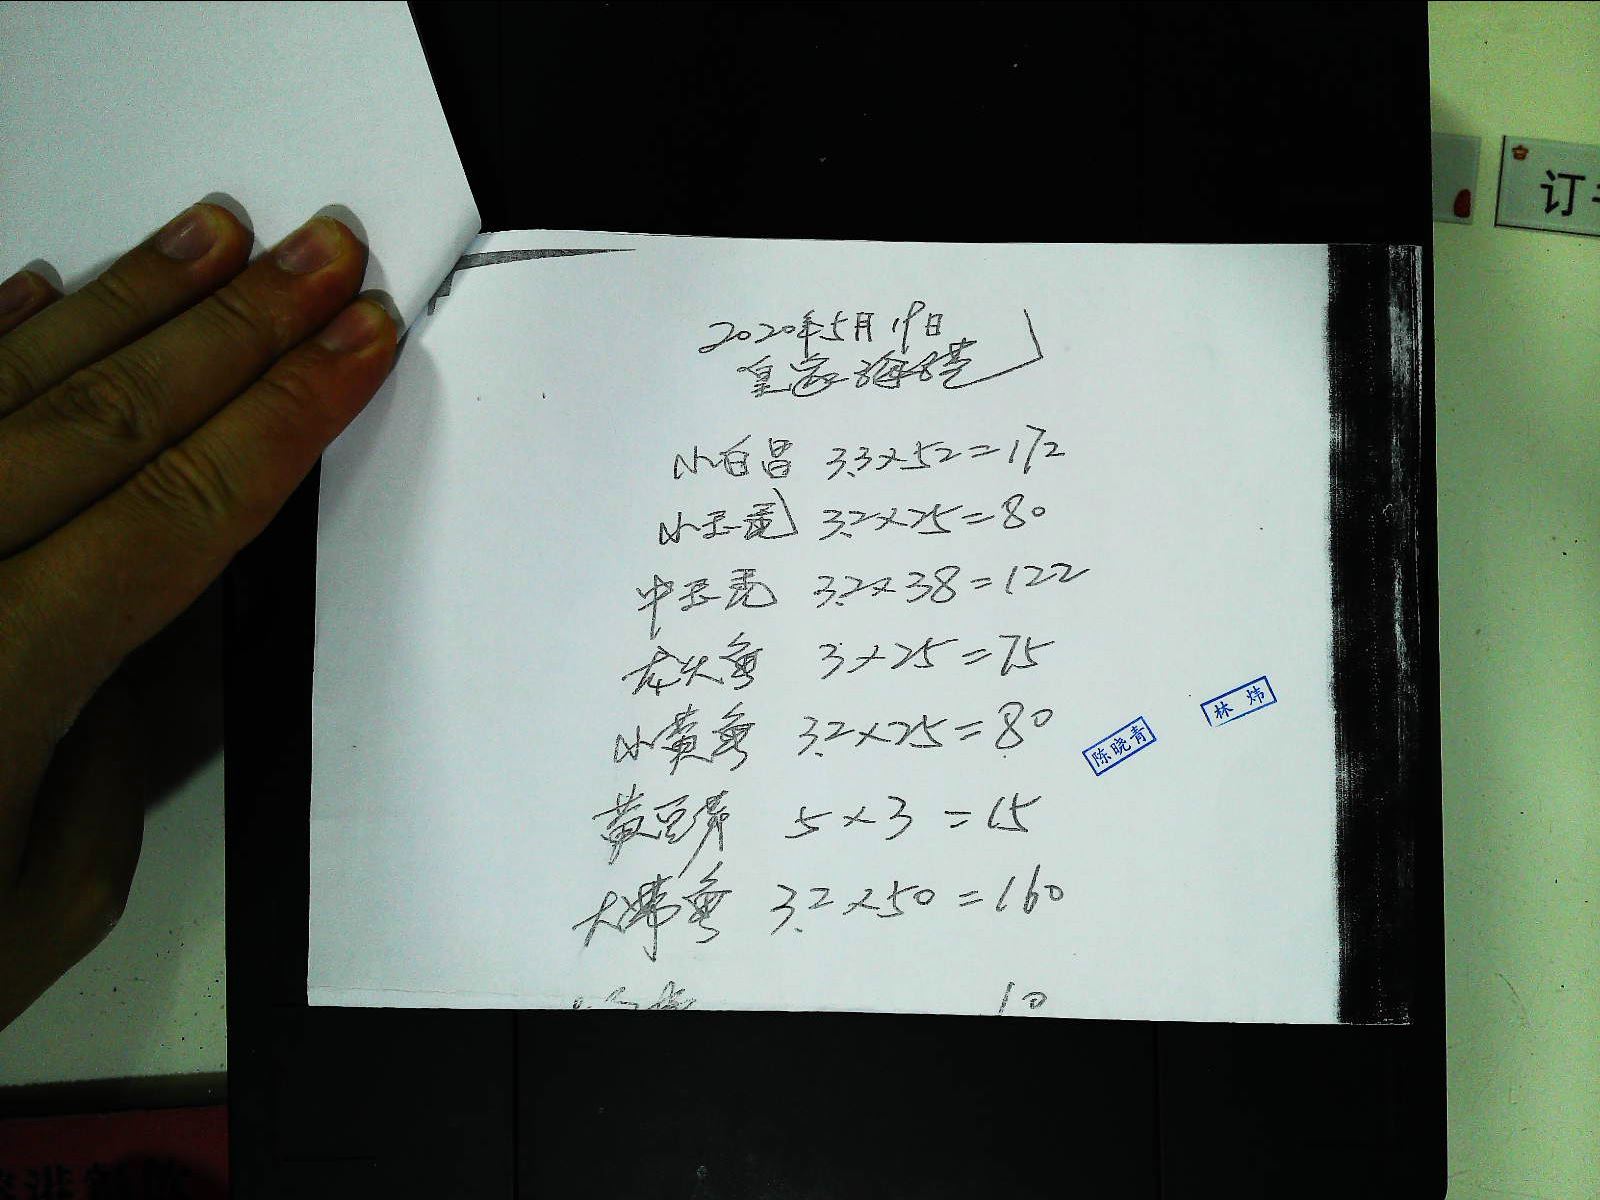 2020年5月19日
皇家海港
小白昌 3.3×52=172
小玉秃 3.2×25=80
中玉秃 3.2×38=122
龙头鱼 3×25=75
小黄鱼 3.2×25=80
黄豆芽 5×3=15
大带鱼 3.2×50=160
10
陈晓青
林炜
订